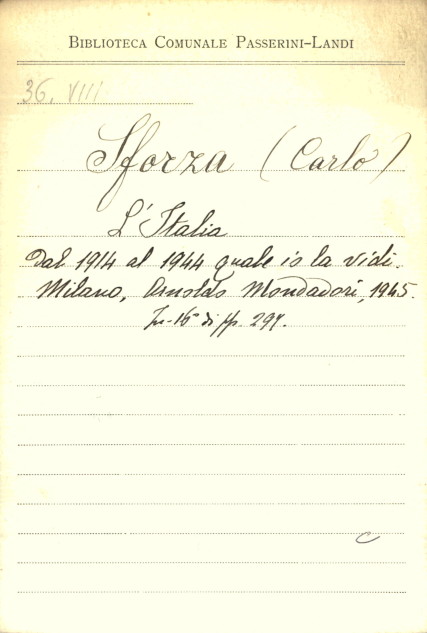 BIBLIOTECA COMUNALE PASSERINI-LANDI
36. VIII
Sforza (Carlo)
L'Italia
dal 1914 al 1944 quale io la vidi.
Milano, Arnoldo Mondadori, 1945.
In-16° di pp. 297.
C